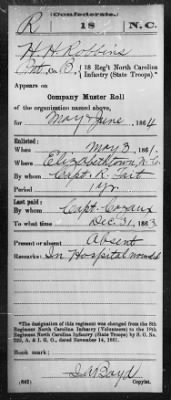 (Confederate.)
R 18 N.C.
H H Robbins
Pvt, Co. B, 18 Reg't North Carolina
Infantry (State Troops).*
Appears on
Company Muster Roll
of the organization named above,
for May & June, 1864
Enlisted:
When May 3, 1861.
Where Elizabethtown, N.C.
By whom Capt. R. Tait
Period 1 yr.
Last paid:
By whom Capt.
To what time Dec 31, 1863
Present or absent Absent
Remarks: In Hospital wounded
*The designation of this regiment was changed from the 8th
Regiment North Carolina Infantry (Volunteers) to the 18th
Regiment North Carolina Infantry (State Troops) by S. O. No.
222, A & I. G. O., dated November 14, 1861.
Book mark:
Boyd
(642) Copyist.